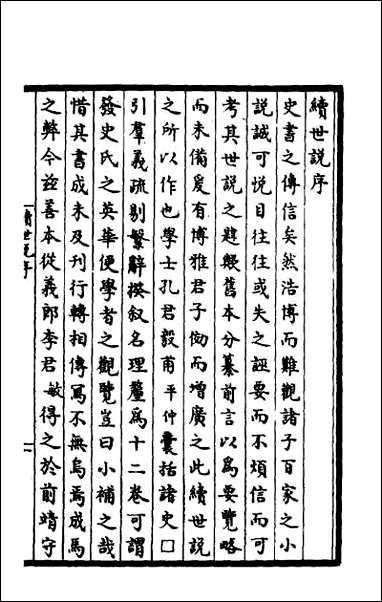 續世說序
史書之傳信矣然浩博而難觀諸子百家之小
說誠可悅目往往或失之誣要而不煩信而可
考其世說之題歟舊本分纂前言以為要覽略
而未備爰有博雅君子因而增廣之此續世說
之所以作也學士孔君毅甫平仲囊括諸史□
引羣義疏剔繁辭揆叙名理釐為十二卷可謂
發史氏之英華便學者之觀覽豈曰小補之哉
惜其書成未及刊行轉相傳寫不無烏焉成馬
之弊今茲善本從義郎李君敏得之於前靖守
續世說序
一